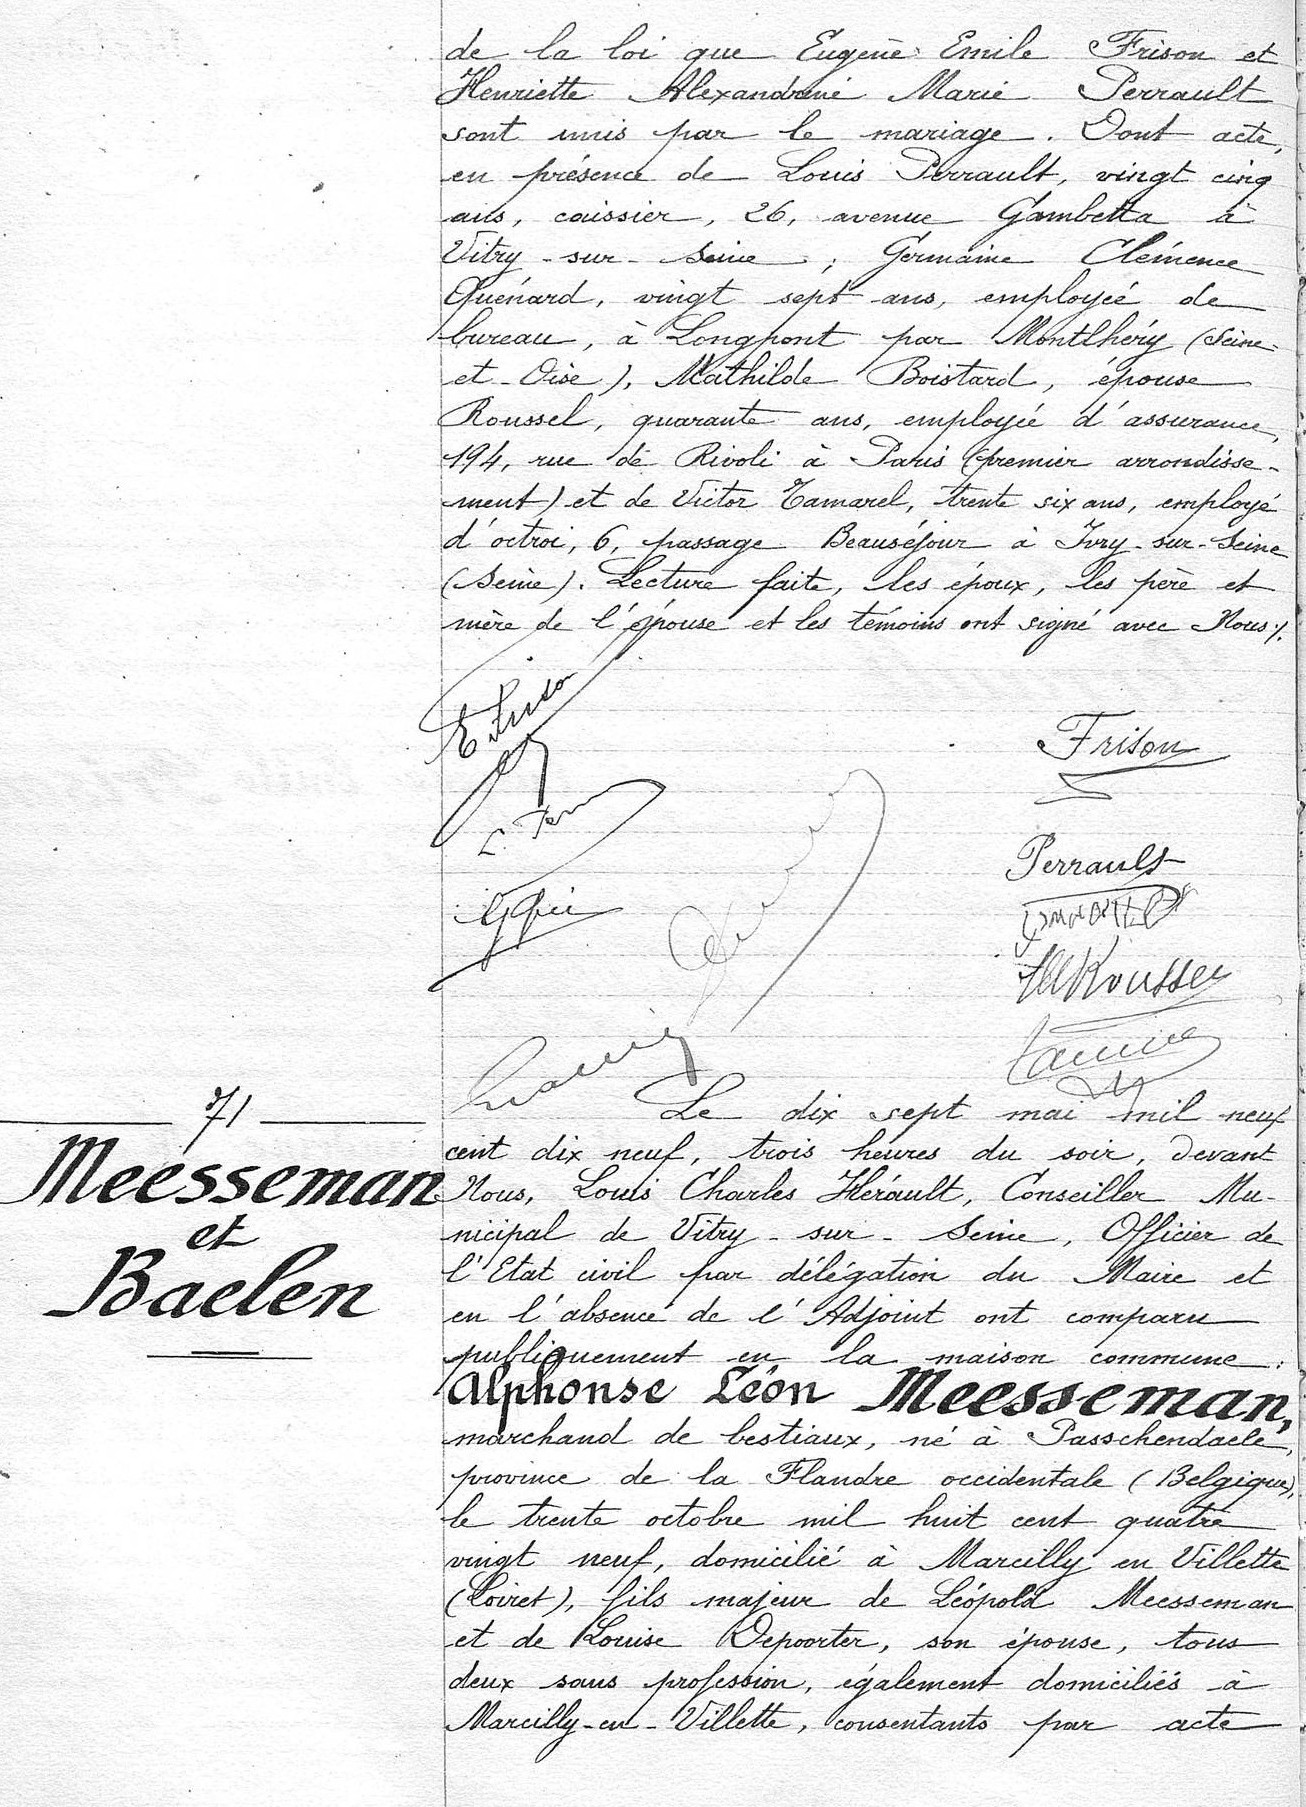 de la loi que Eugène Emile Frison et
Henriette Alexandrine Marie Perrault
sont unis par le mariage. Dont acte,
en présence de Louis Perrault, vingt cinq
ans, caissier, 26, avenue Gambetta à
Vitry-sur-Seine; Germaine Clémence
Quénard, vingt sept ans, employée de
bureau, à Longpont par Montlhéry (Seine-
et-Oise), Mathilde Boistard, épouse
Roussel, quarante ans, employée d'assurance,
194, rue de Rivoli à Paris (premier arrondisse-
ment) et de Victor Tamarel, trente six ans, employé
d'octroi, 6, passage Beauséjour à Ivry-sur-Seine
(Seine). Lecture faite, les époux, les père et
mère de l'épouse et les témoins ont signé avec Nous ./.
E. Frison
Frison
Perrault
71
Meesseman
et
Baelen
Le dix sept mai mil neuf
cent dix neuf, trois heures du soir, devant
Nous, Louis Charles Hérault, Conseiller Mu-
nicipal de Vitry-sur-Seine, Officier de
l'Etat civil par délégation du Maire et
en l'absence de l'Adjoint ont comparu
publiquement en la maison commune:
Alphonse Léon Meesseman,
marchand de bestiaux, né à Passchendaele,
province de la Flandre occidentale (Belgique),
le trente octobre mil huit cent quatre
vingt neuf, domicilié à Marcilly en Villette
(Loiret), fils majeur de Léopold Meesseman
et de Louise Depoorter, son épouse, tous
deux sans profession, également domiciliés à
Marcilly-en-Villette, consentants par acte